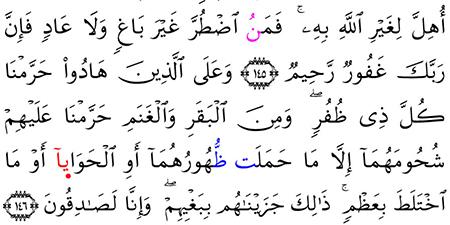 أُهِلَّ لِغَيْرِ ٱللَّهِ بِهِۦۚ فَمَنُ ٱضْطُرَّ غَيْرَ بَاغٍ وَلَا عَادٍ فَإِنَّ
رَبَّكَ غَفُورٌ رَّحِيمٌ ١٤٥ وَعَلَى ٱلَّذِينَ هَادُوا۟ حَرَّمْنَا
كُلَّ ذِى ظُفُرٍۖ وَمِنَ ٱلْبَقَرِ وَٱلْغَنَمِ حَرَّمْنَا عَلَيْهِمْ
شُحُومَهُمَآ إِلَّا مَا حَمَلَت ظُّهُورُهُمَآ أَوِ ٱلْحَوَايَآ أَوْ مَا
ٱخْتَلَطَ بِعَظْمٍۚ ذَٰلِكَ جَزَيْنَٰهُم بِبَغْيِهِمْۖ وَإِنَّا لَصَٰدِقُونَ ١٤٦